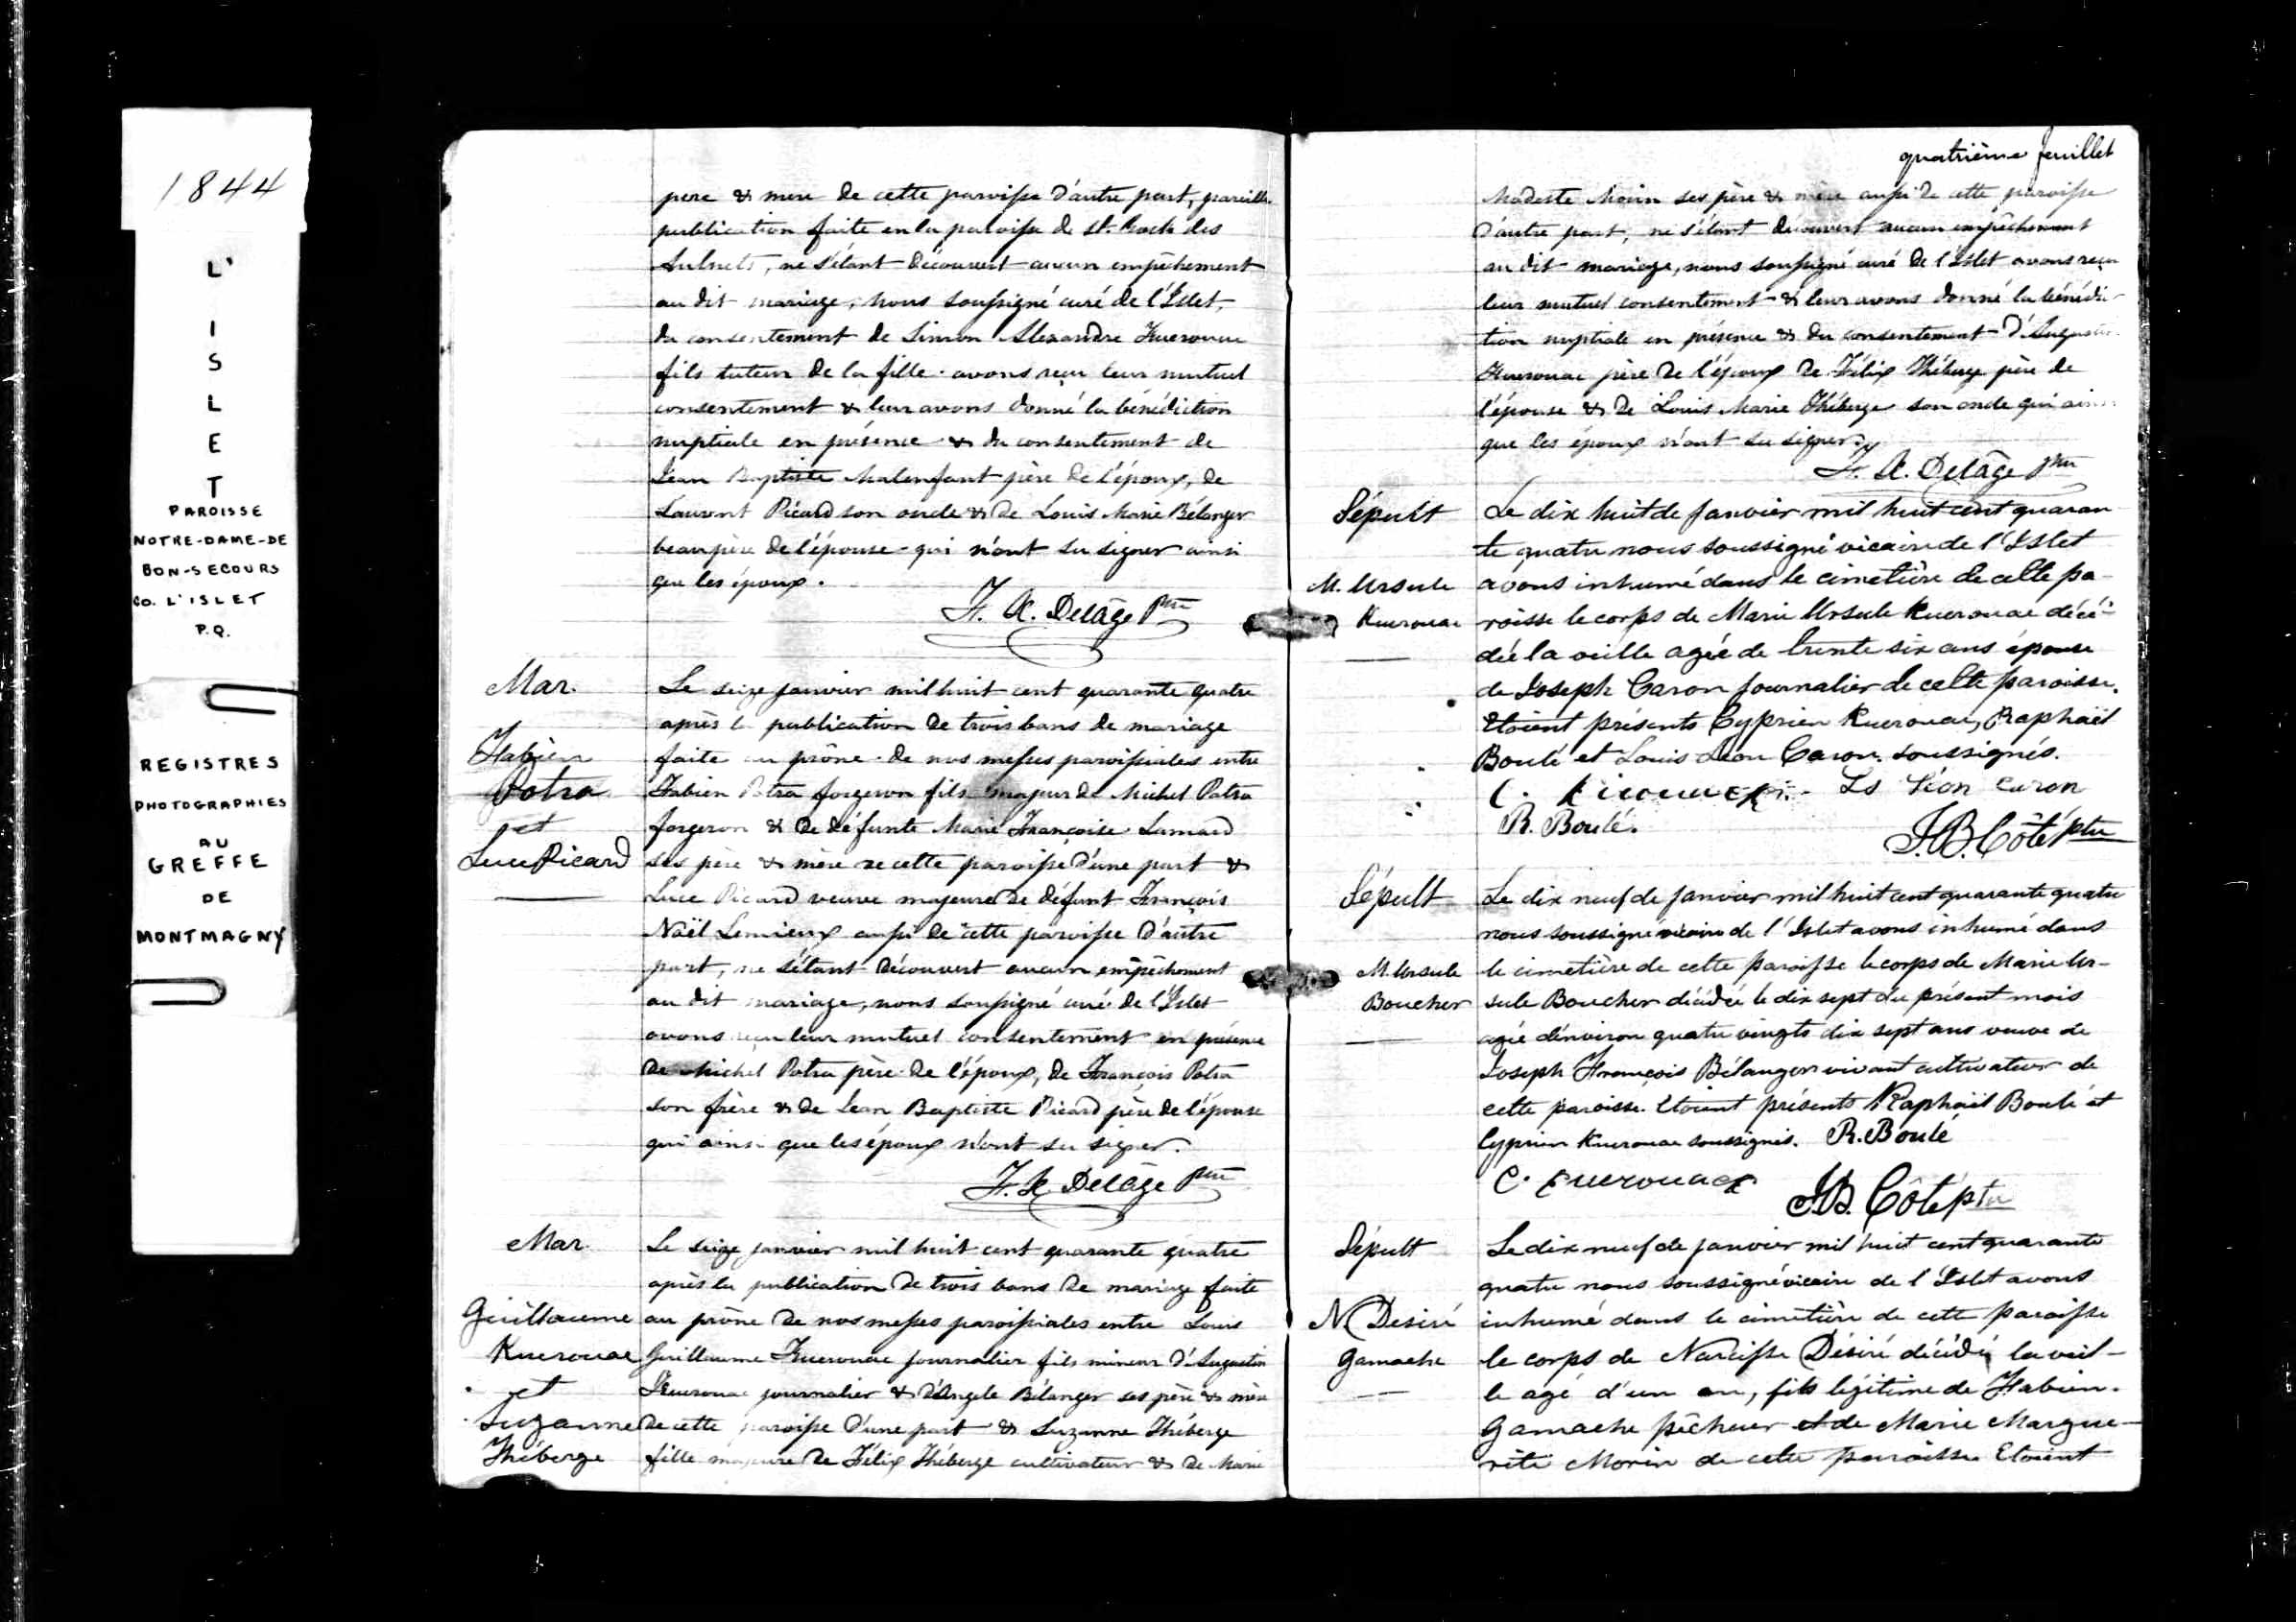 1844
L'
I
S
L
E
T
PAROISSE
NOTRE-DAME-DE
BON-SECOURS
CO. L'ISLET
P.Q.
REGISTRES
PHOTOGRAPHIES
AU
GREFFE
DE
MONTMAGNY
pere & mere de cette paroisse d'autre part, pareille
publication faite en la paroisse de St. Roch des
Aulnets, ne s'étant découvert aucun empêchement
au dit mariage, nous soussigné curé de l'Islet,
du consentement de Simon Alexandre Kuerouac
fils tuteur de la fille. avons reçu leur mutuel
consentement & leur avons donné la bénédiction
nuptiale en présence & du consentement de
Jean Baptiste Malenfant père de l'époux, de
Laurent Picard son oncle & de Louis Marie Bélanger
beau père de l'épouse qui n'ont su signer ainsi
que les époux.
F. X. Delâge Ptre
Mar.
Fabien
Potra
et
Luce Picard
Le seize janvier mil huit cent quarante quatre
après la publication de trois bans de mariage
faite au prône de nos messes paroissiales entre
Fabien Potra forgeron fils majeur de Michel Potra
forgeron & de défunte Marie Françoise
ses père & mère de cette paroisse d'une part &
Luce Picard veuve majeure de défunt François
Naël Lemieux aussi de cette paroisse d'autre
part, ne s'étant découvert aucun empêchement
au dit mariage, nous soussigné curé de l'Islet
avons reçu leur mutuel consentement en présence
de Michel Potra père de l'époux, de François Potra
son frère & de Jean Baptiste Picard père de l'épouse
qui ainsi que les époux n'ont su signer.
F. X. Delâge Ptre
Mar.
Guillaume
Kuerouac
et
Suzanne
Théberge
Le seize janvier mil huit cent quarante quatre
après la publication de trois bans de mariage faite
au prône de nos messes paroissiales entre Louis
Guillaume Kuerouac journalier fils mineur d'Augustin
Kuerouac journalier & d'Angele Bélanger ses père & mère
de cette paroisse d'une part & Suzanne Théberge
fille majeure de Félix Théberge cultivateur & de Marie
quatrième feuillet
Modeste Morin ses père & mère aussi de cette paroisse
d'autre part, ne s'étant découvert aucun empêchement
au dit mariage, nous soussigné curé de l'Islet avons reçu
leur mutuel consentement & leur avons donné la bénédic-
tion nuptiale en présence & du consentement d'Augustin
Kuerouac père de l'époux de Félix Théberge père de
l'épouse & de Louis Marie Théberge son oncle qui ainsi
que les époux n'ont su signer
F. X. Delâge Ptre
Sépult
M. Ursule
Kuerouac
Le dix huit de Janvier mil huit cent quaran
te quatre nous soussigné vicaire de l'Islet
avons inhumé dans le cimetière de cette pa-
roisse le corps de Marie Ursule Kuerouac décé-
dée la veille agée de trente six ans épouse
de Joseph Caron journalier de cette paroisse.
Etoient présents Cyprien Kuerouac, Raphaël
Boulé et Louis Léon Caron soussignés.
C. Kirouack Ls Léon Caron
R. Boulé.
J.B. Côté ptre
Sépult
M. Ursule
Boucher
Le dix neuf de Janvier mil huit cent quarante quatre
nous soussigné vicaire de l'Islet avons inhumé dans
le cimetière de cette paroisse le corps de Marie Ur-
sule Boucher décédée le dix sept du présent mois
agée d'environ quatre vingts dix sept ans veuve de
Joseph François Bélanger vivant cultivateur de
cette paroisse. Etoient présents Raphaël Boulé et
Cyprien Kuerouac soussignés. R. Boulé
C. Kuerouack J.B. Côté ptre
Sépult
N Désiré
Gamache
Le dix neuf de janvier mil huit cent quarante
quatre nous soussigné vicaire de l'Islet avons
inhumé dans le cimetière de cette paroisse
le corps de Narcisse Désiré décédé la veil-
le agé d'un an, fils légitime de Fabien
Gamache pêcheur et de Marie Margue-
rite Morin de cette paroisse Etoient